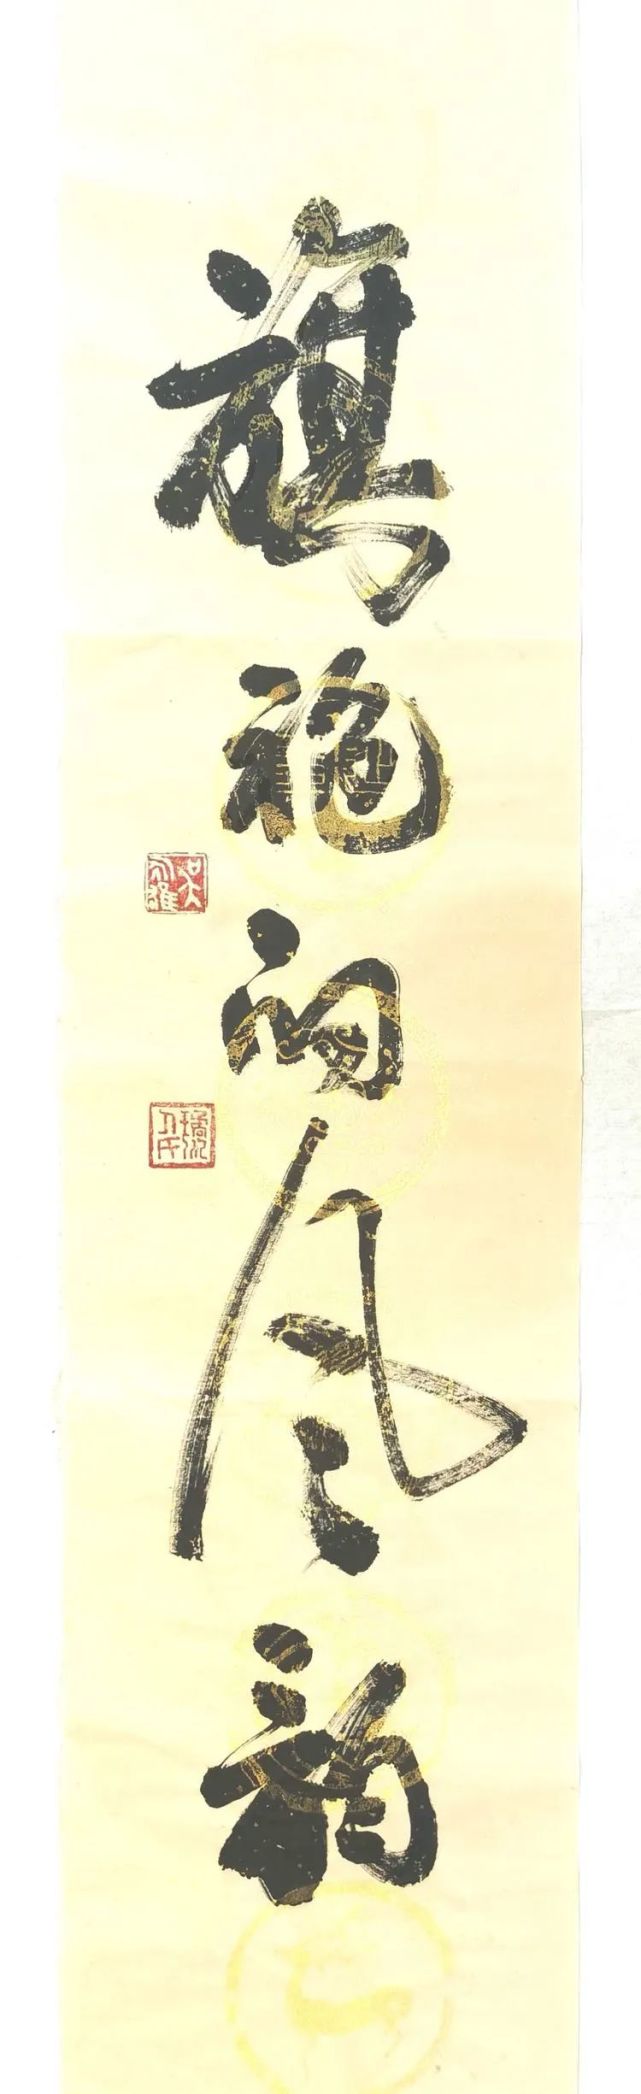 旗袍的风韵